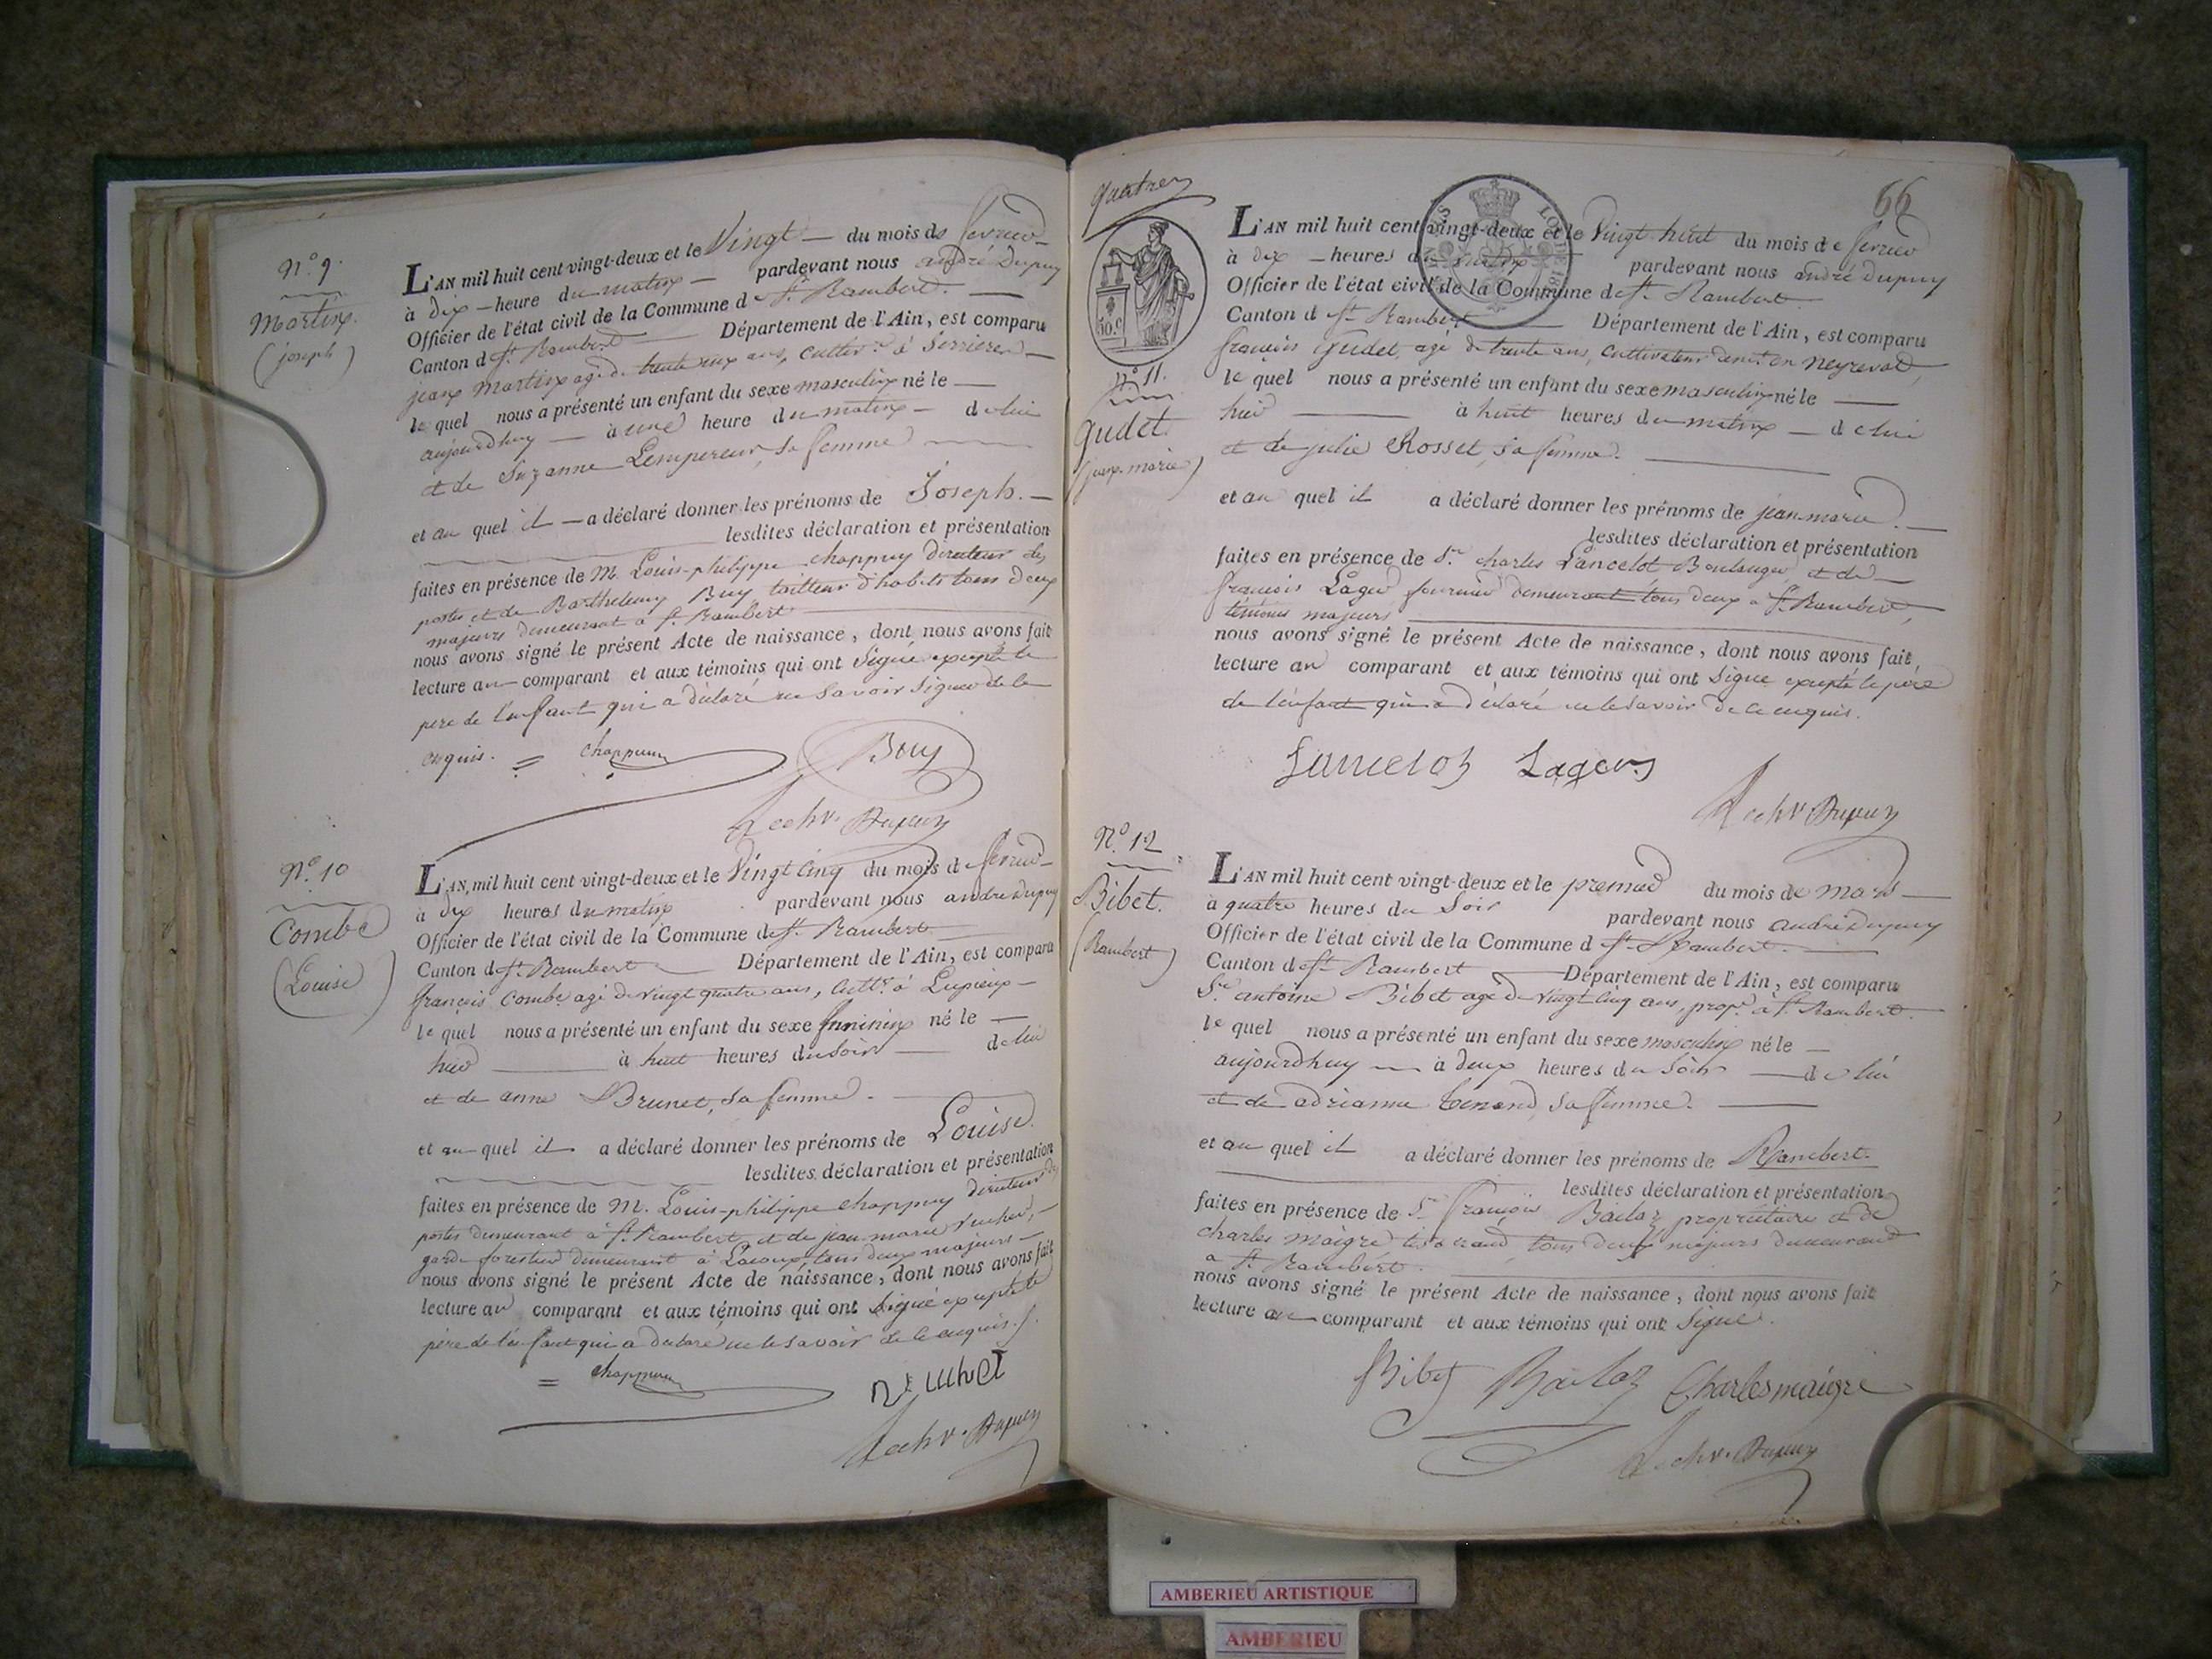 N.º 9.
Martin.
(joseph)
L'AN mil huit cent vingt-deux et le Vingt — du mois de fevrier
à dix — heure du matin — pardevant nous andré Dupuy
Officier de l'état civil de la Commune de St. Rambert. —
Canton d St. Rambert — Département de l'Ain, est comparu
jean Martin agé de trente ans, cultiv.r à Serrieres —
le quel nous a présenté un enfant du sexe masculin né le —
aujourdhuy — à une heure du matin — de lui
et de Suzanne Lempereur, sa femme
et au quel il — a déclaré donner les prénoms de Joseph. —
lesdites déclaration et présentation
faites en présence de M. Louis-philippe chappuy directeur des
postes et de Barthelemy Buy tailleur d'habits tous deux
majeurs demeurant à St. Rambert
nous avons signé le présent Acte de naissance, dont nous avons fait
lecture au comparant et aux témoins qui ont Signé excepté le
pere de l'enfant qui a déclaré ne Savoir Signer de le
enquis. = chappuy Buy
Dupuy
N.º 10
Combe
(Louise)
L'AN mil huit cent vingt-deux et le Vingt cinq du mois de fevrier
à dix heures du matin pardevant nous andré Dupuy
Officier de l'état civil de la Commune de St. Rambert
Canton d St. Rambert — Département de l'Ain, est comparu
françois Combe agé de vingt quatre ans, cult.r à Lupieux —
le quel nous a présenté un enfant du sexe feminin né le —
hier — à huit heures du Soir — de lui
et de anne Brunet, sa femme. —
et au quel il a déclaré donner les prénoms de Louise.
lesdites déclaration et présentation
faites en présence de M. Louis-philippe chappuy directeur des
postes demeurant à St. Rambert et de jean marie
garde forestier demeurant à Lacoux, tous deux majeurs —
nous avons signé le présent Acte de naissance, dont nous avons fait
lecture au comparant et aux témoins qui ont Signé excepté le
père de l'enfant qui a déclaré ne le savoir de ce enquis.
= chappuy
Dupuy
66
50. C.
N.º 11.
Gudet
(jean-marie)
L'AN mil huit cent vingt-deux et le Vingt-huit du mois de fevrier
à dix — heures du matin pardevant nous andré Dupuy
Officier de l'état civil de la Commune de St. Rambert
Canton d St. Rambert — Département de l'Ain, est comparu
françois Gudet, agé de trente ans, cultivateur demt. en Neyrevat,
le quel nous a présenté un enfant du sexe masculin né le —
hier — à huit heures du matin — de lui
et de julie Rosset, sa femme. —
et au quel il a déclaré donner les prénoms de jean-marie. —
lesdites déclaration et présentation
faites en présence de Sr. charles Lancelot, Boulanger, et de —
françois Lager fournier demeurant tous deux a St. Rambert,
témoins majeurs
nous avons signé le présent Acte de naissance, dont nous avons fait
lecture au comparant et aux témoins qui ont Signé excepté le père
de l'enfant qui a déclaré ne le savoir de ce enquis.
Lancelot Lager
Dupuy
N.º 12
Bibet.
(Rambert)
L'AN mil huit cent vingt-deux et le premier du mois de mars —
à quatre heures du Soir pardevant nous andré Dupuy
Officier de l'état civil de la Commune d St. Rambert. —
Canton de St. Rambert — Département de l'Ain, est comparu
Sr. antoine Bibet agé de vingt cinq ans, prop.re à St. Rambert.
le quel nous a présenté un enfant du sexe masculin né le —
aujourdhuy — à deux heures du Soir — de lui
et de adrianne tenand, sa femme. —
et au quel il a déclaré donner les prénoms de Rambert.
lesdites déclaration et présentation
faites en présence de Sr. françois Bailaz, propriétaire et de
charles maigre tisserand, tous deux majeurs demeurant
a St. Rambert.
nous avons signé le présent Acte de naissance, dont nous avons fait
lecture au comparant et aux témoins qui ont Signé.
Bibet Bailaz Charles maigre
Dupuy
AMBERIEU ARTISTIQUE
AMBERIEU